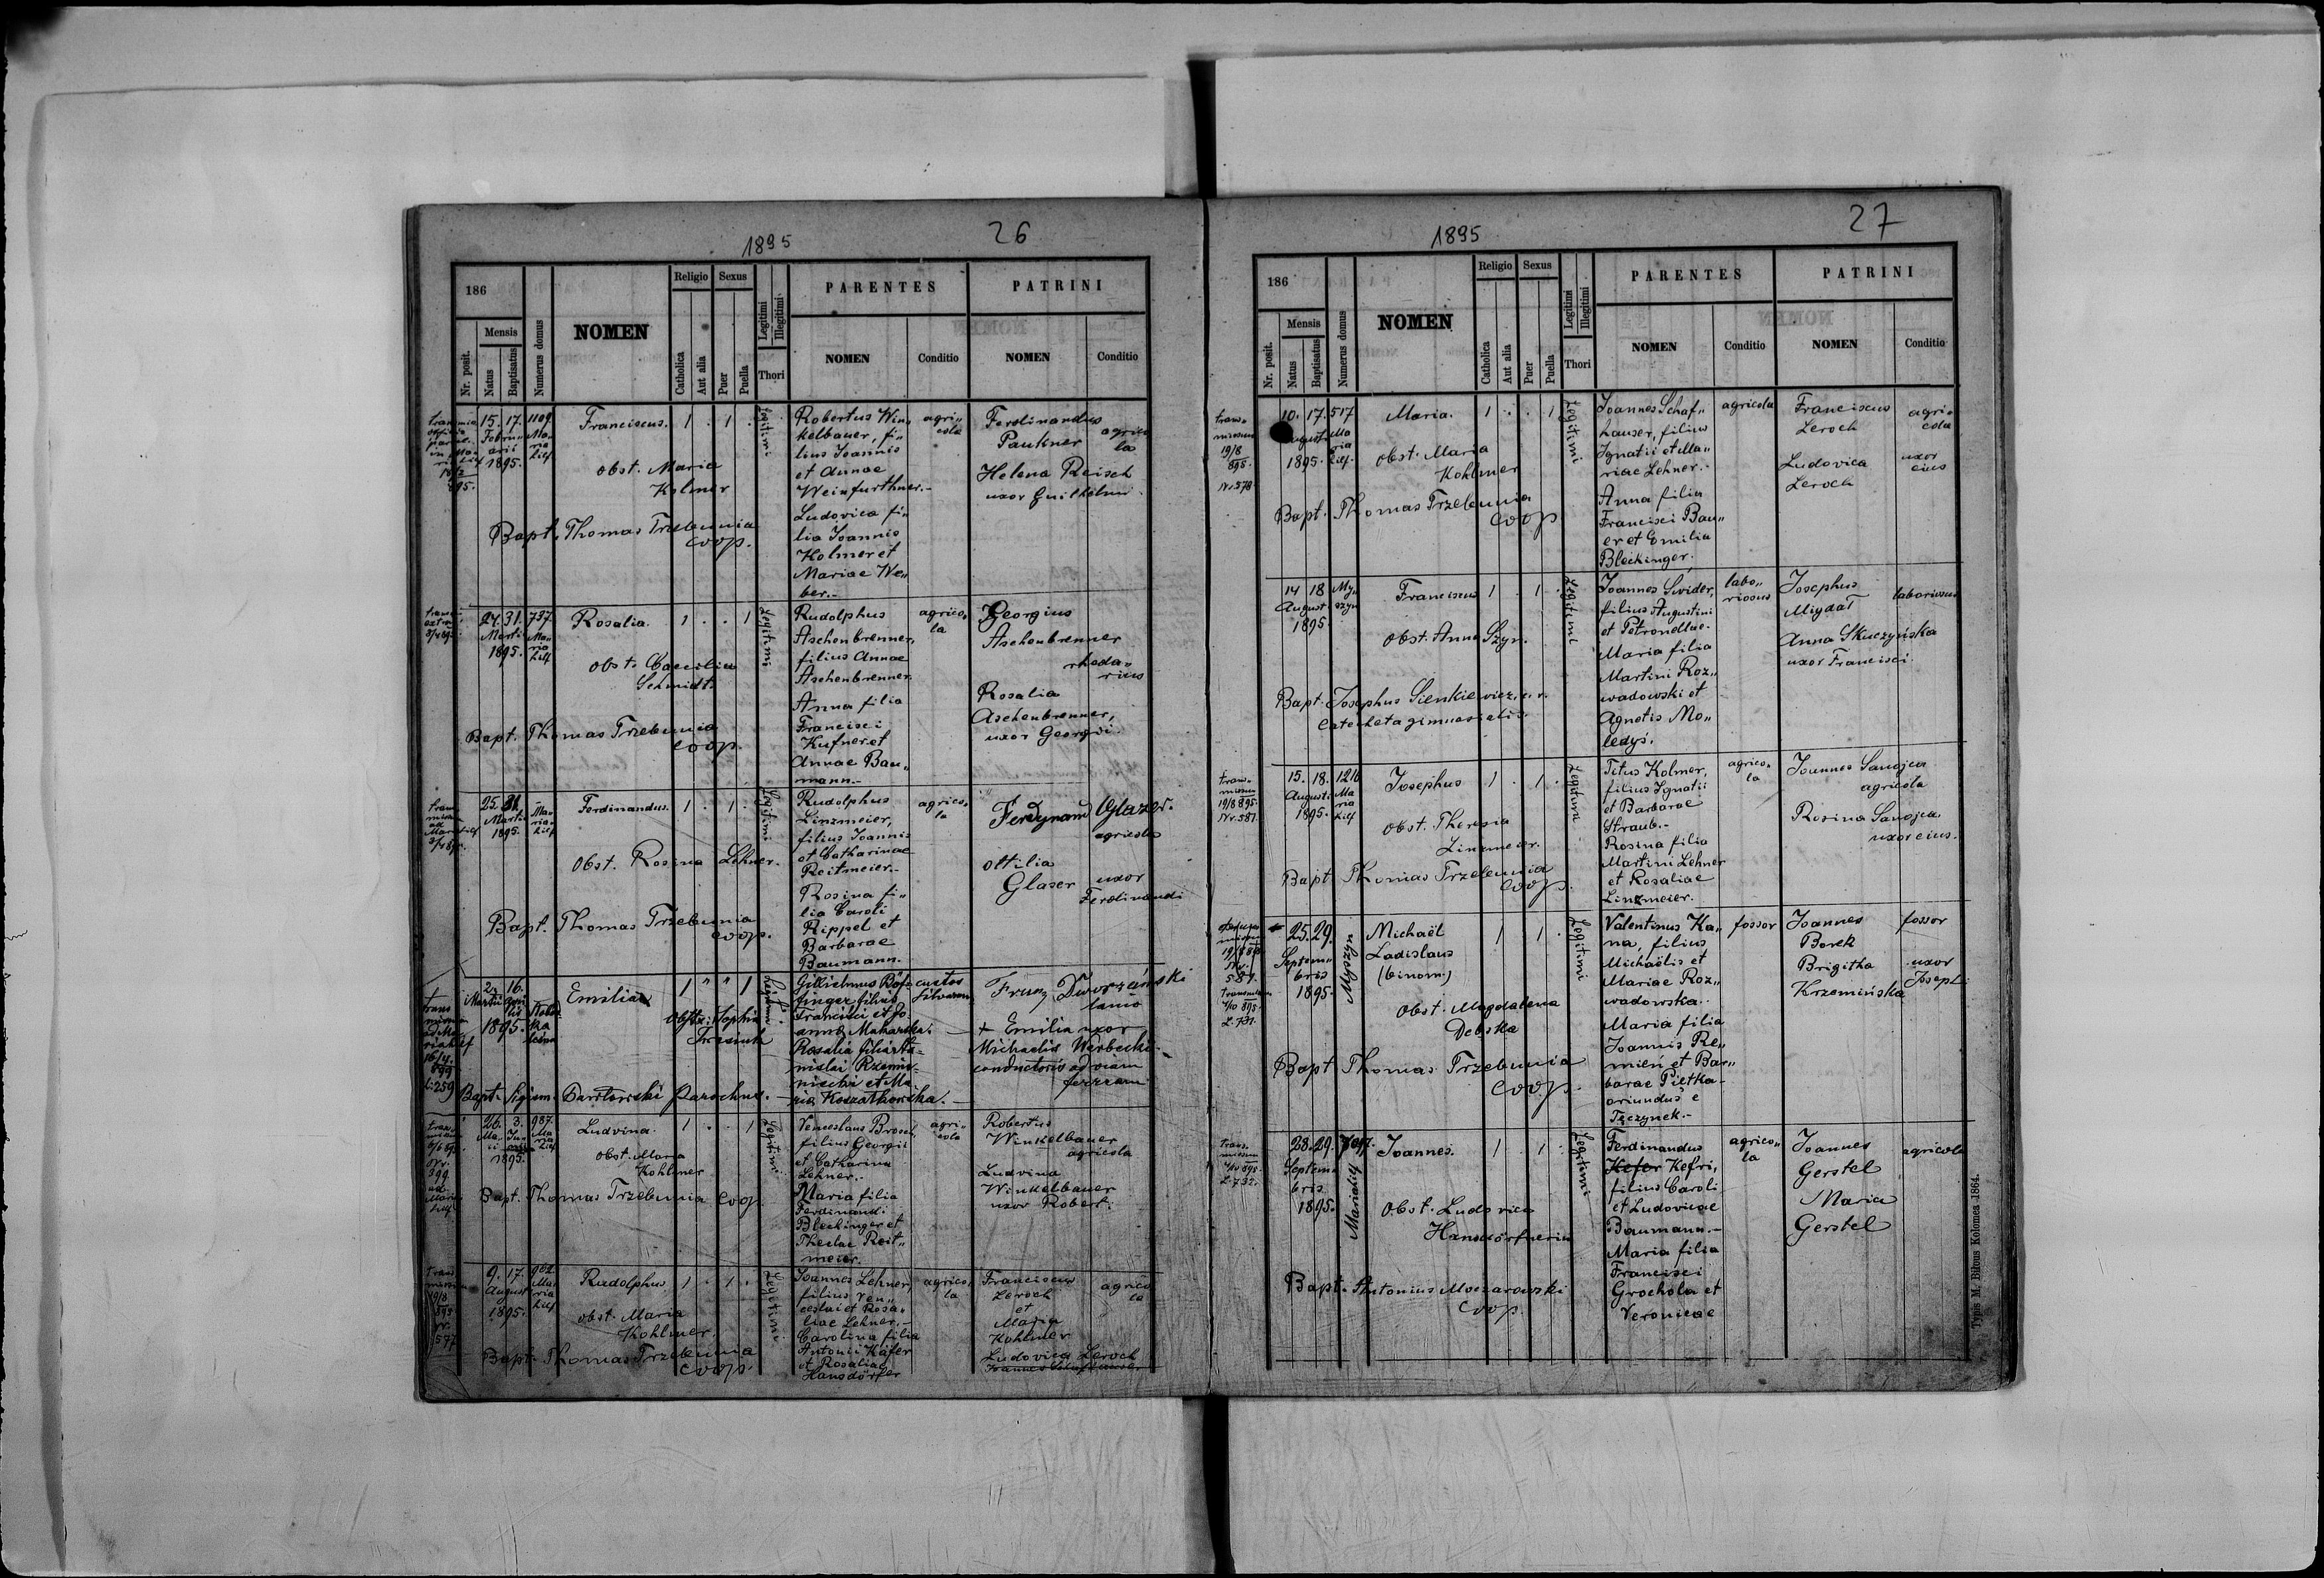 1895
26
186
Mensis
Nr. posit.
Natus
Baptisatus
Numerus domus
NOMEN
Religio
Catholica
Aut alia
Sexus
Puer
Puella
Legitimi
Illegitimi
Thori
PARENTES
NOMEN
Conditio
PATRINI
NOMEN
Conditio
15. 17. 1109
Febru„ Ma„
arii ria
1895. Lief
Franciscus. 1 . 1 .
obst. Maria
Kolmer
Bapt. Thomas Trzebunia
coop.
Legitimi
Robertus Win„
kelbauer, fi„
lius Joannis
et Annae
Weinfurthner.-
Ludovica fi„
lia Joannis
Kolmer et
Mariae We„
ber.-
agri„
cola
Ferdinandus
Paukner
agrico
la
Helena Reisch
uxor Guilhelmi
24. 31. 737
Martii Ma„
1895. ria
Lief
Rosalia. 1 . . 1
obst. Caecilia
Schmidt.
Bapt. Thomas Trzebunia
coop.
Legitimi
Rudolphus
Aschenbrenner,
filius Annae
Aschenbrenner.
Anna filia
Francisci
Kufner et
Annae Bau„
mann.-
agrico„
la
Georgius
Aschenbrenner
rheda„
rius
Rosalia
Aschenbrenner,
uxor Georgii.
25. 31.
Martii Ma„
1895. ria
Lief
Ferdinandus. 1 . 1 .
Obst. Rosina Lehner.
Bapt. Thomas Trzebunia
coop.
Legitimi
Rudolphus
Linzmeier,
filius Joannis
et Catharinae
Reitmeier.-
Rosina fi„
lia Caroli
Rippel et
Barbarae
Baumann.
agrico„
la
Ferdynand Glazer.
agricola
Ottilia
Glaser uxor
Ferdinandi
2. 16.
Martii
1895.
Emilia 1 " " 1
Obstx: Sophia
Bapt. Sigism. Parochus.
Legitimi
filius
Francisci et Jo
anna
Rosalia filia Sta„
nislai
et Ma
ria
custos
silvarum
Franz Dworzański
+ Emilia uxor
Michaelis Werbecki
conductoris ad viam
ferream
26. 3. 987
Ma„ Ju„ Ma
ii nii ria
1895. Lief
Ludvina. 1 . . 1
obst. Maria
Kohlmer
Bapt. Thomas Trzebunia coop.
Legitimi
Venceslaus Brosch,
filius Georgii
et Catharina
Lehner.-
Maria filia
Ferdinandi
Bleckinger et
Theclae Reit„
meier.
agri„
cola
Robertus
Winkelbauer
agricola
Ludvina
Winkelbauer
uxor Robert.
9. 17. 902
August Ma„
1895. ria
Lief
Rudolphus 1 . 1 .
obst. Maria
Kohlmer.
Bapt. Thomas Trzebunia
coop.
Legitimi
Joannes Lehner,
filius Ven„
ceslai et Rosa„
liae Lehner.-
Carolina filia
Antonii Käfer
et Rosaliae
Hansdörfer
agrico„
la
Franciscus
Leroch
et
Maria
Kohlmer
Ludovica Leroch
agrico
la
1895
27
186
Mensis
Nr. posit.
Natus
Baptisatus
Numerus domus
NOMEN
Religio
Catholica
Aut alia
Sexus
Puer
Puella
Legitimi
Illegitimi
Thori
PARENTES
NOMEN
Conditio
PATRINI
NOMEN
Conditio
trans„
missum
19/8
895.
Nr. 578.
10. 17. 517
August. Ma
1895. ria
Lief.
Maria. 1 . . 1
obst. Maria
Kohlmer
Bapt. Thomas Trzebunia
coop
Legitimi
Joannes Schaf„
hauser, filius
Ignatii et Ma„
riae Lehner.-
Anna filia
Francisci Bau„
er et Emilia
Bleckinger.
agricola
Franciscus
Leroch
agri„
cola
Ludovica
Leroch
uxor
eius
14 18 My„
August. szyn
1895.
Franciscus 1 . 1 .
obst. Anna Szyn.
Bapt. Josephus Sienkiewicz, c. r.
Catecheta gimnasialis.
Legitimi
Joannes Swider,
filius Augustini
et Petronellae.
Maria filia
Martini Roz„
wadowski et
Agnetis Mo„
ledys.
labo„
riosus
Josephus
Migdał
laboriosus
Anna Skuczyńska
uxor Francisci.
trans„
missum
19/8 895.
Nr. 581.
15. 18. 1216
Augusti Ma
1895. ria
Lief
Josephus 1 . 1 .
obst. Theresia
Linzmeier.
Bapt Thomas Trzebunia
coop.
Legitimi
Titus Kolmer,
filius Ignatii
et Barbarae
Straub.-
Rosina filia
Martini Lehner
et Rosaliae
Linzmeier.
agrico„
la
Joannes Sanojca
agricola
Rosina Sanojca
uxor eius.
25. 29.
Septem„
bris
1895.
Myszyn
Michaël
Ladislaus
(binom.)
1 1 .
Obst. Magdalena
Debska
Bapt Thomas Trzebunia
coop.
Legitimi
Valentinus Ka„
na, filius
Michaëlis et
Mariae Roz„
wadowska.-
Maria filia
Joannis Re„
mień et Bar„
barae Piętka-
oriundus e
Tęczynek.-
fossor
Joannes
Borek
fossor
Brigitha
Krzemińska
uxor
Josephi
trans.
missum
4/10 895.
L. 732.
28. 29.
Septem„
bris
1895.
Joannes. 1 . 1 .
Obst. Ludovica
Bapt. Antonius Moczarowski
coop.
Legitimi
Ferdinandus
Kefer Kefri,
filius Caroli
et Ludovicae
Baumann.-
Maria filia
Francisci
Grochola et
Veronicae
agrico„
la
Joannes
Gerstel
agricola
Maria
Gerstel
Typis M. Bilous Kolomea 1864.